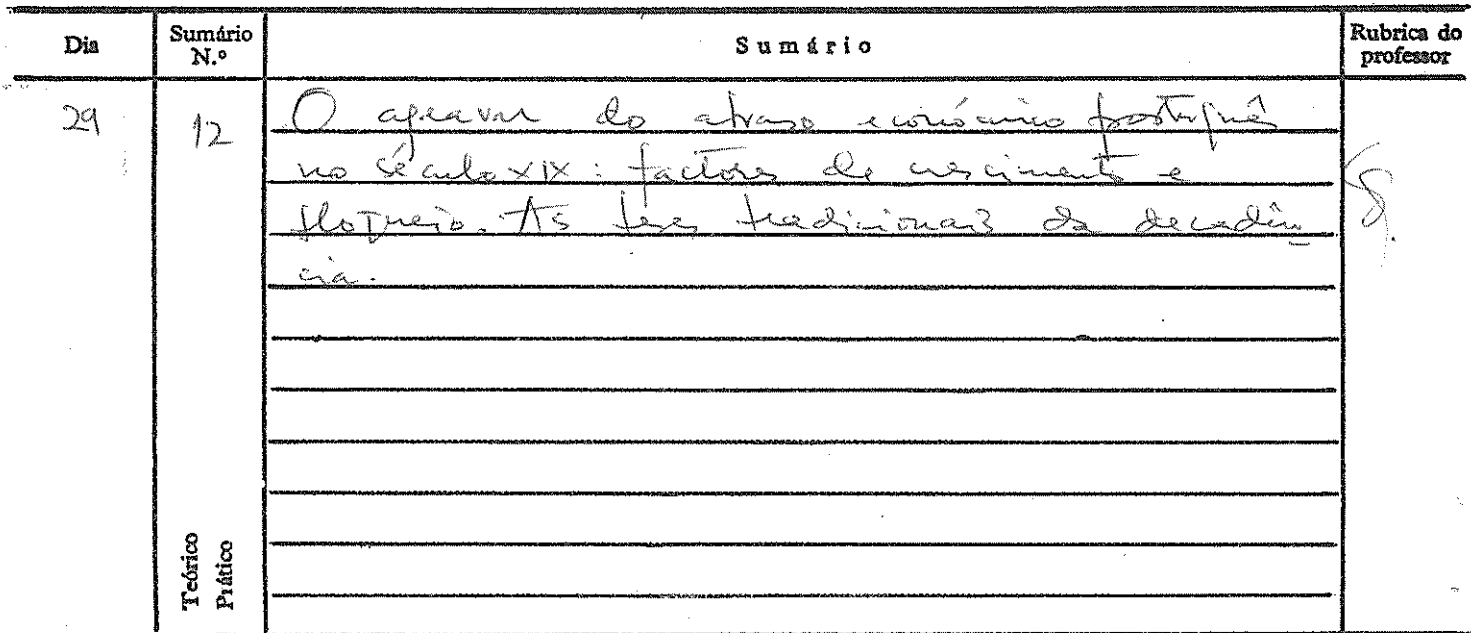 Dia
Sumário N.º
Sumário
Rubrica do professor
29
12
O agravar do atraso económico português
no século XIX: factores de crescimento e
bloqueio. As teses tradicionais da decadên
cia.
Teórico
Prático